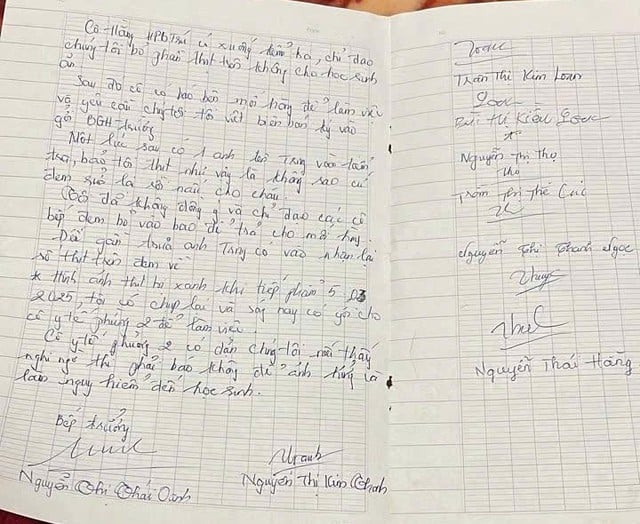 Cô Hằng HPBTrú có xuống kiểm tra, chỉ đạo
chúng tôi bỏ phần thịt trên không cho học sinh
ăn.
Sau đó cô có báo bên mối hàng để làm việc
và yêu cầu chúng tôi viết biên bản ký vào
gởi BGH trường
Một lúc sau có 1 anh tên Trng vào kiểm
tra, bảo tôi thịt như vậy là không sao cứ
đem rửa là rồi nấu cho cháu.
Cô đó không đồng ý và chỉ đạo các cô
bếp đem bỏ vào bao để trả cho mối hàng.
Đến gần trưa anh Trng có vào nhận lại
số thịt trên đem về
* Hình ảnh thịt bị xanh khi tiếp phẩm 5 03
2025, tôi có chụp lại và sáng nay có gởi cho
cô y tế phường 2 để làm việc.
Cô y tế phường 2 có dặn chúng tôi nếu thấy
nghi ngờ thì phải báo không để ảnh hưởng và
làm nguy hiểm đến học sinh.
Bếp trưởng
Nguyễn Thị Thái Oanh
Nguyễn Thị Kim Oanh
Loan
Trần Thị Kim Loan
Loan
Bùi Thị Kiều Loan
Nguyễn Thị Thọ
Thọ
Trần Thị Thế Cúc
Nguyễn Thị Thanh Ngọc
Nguyễn Thái Hằng